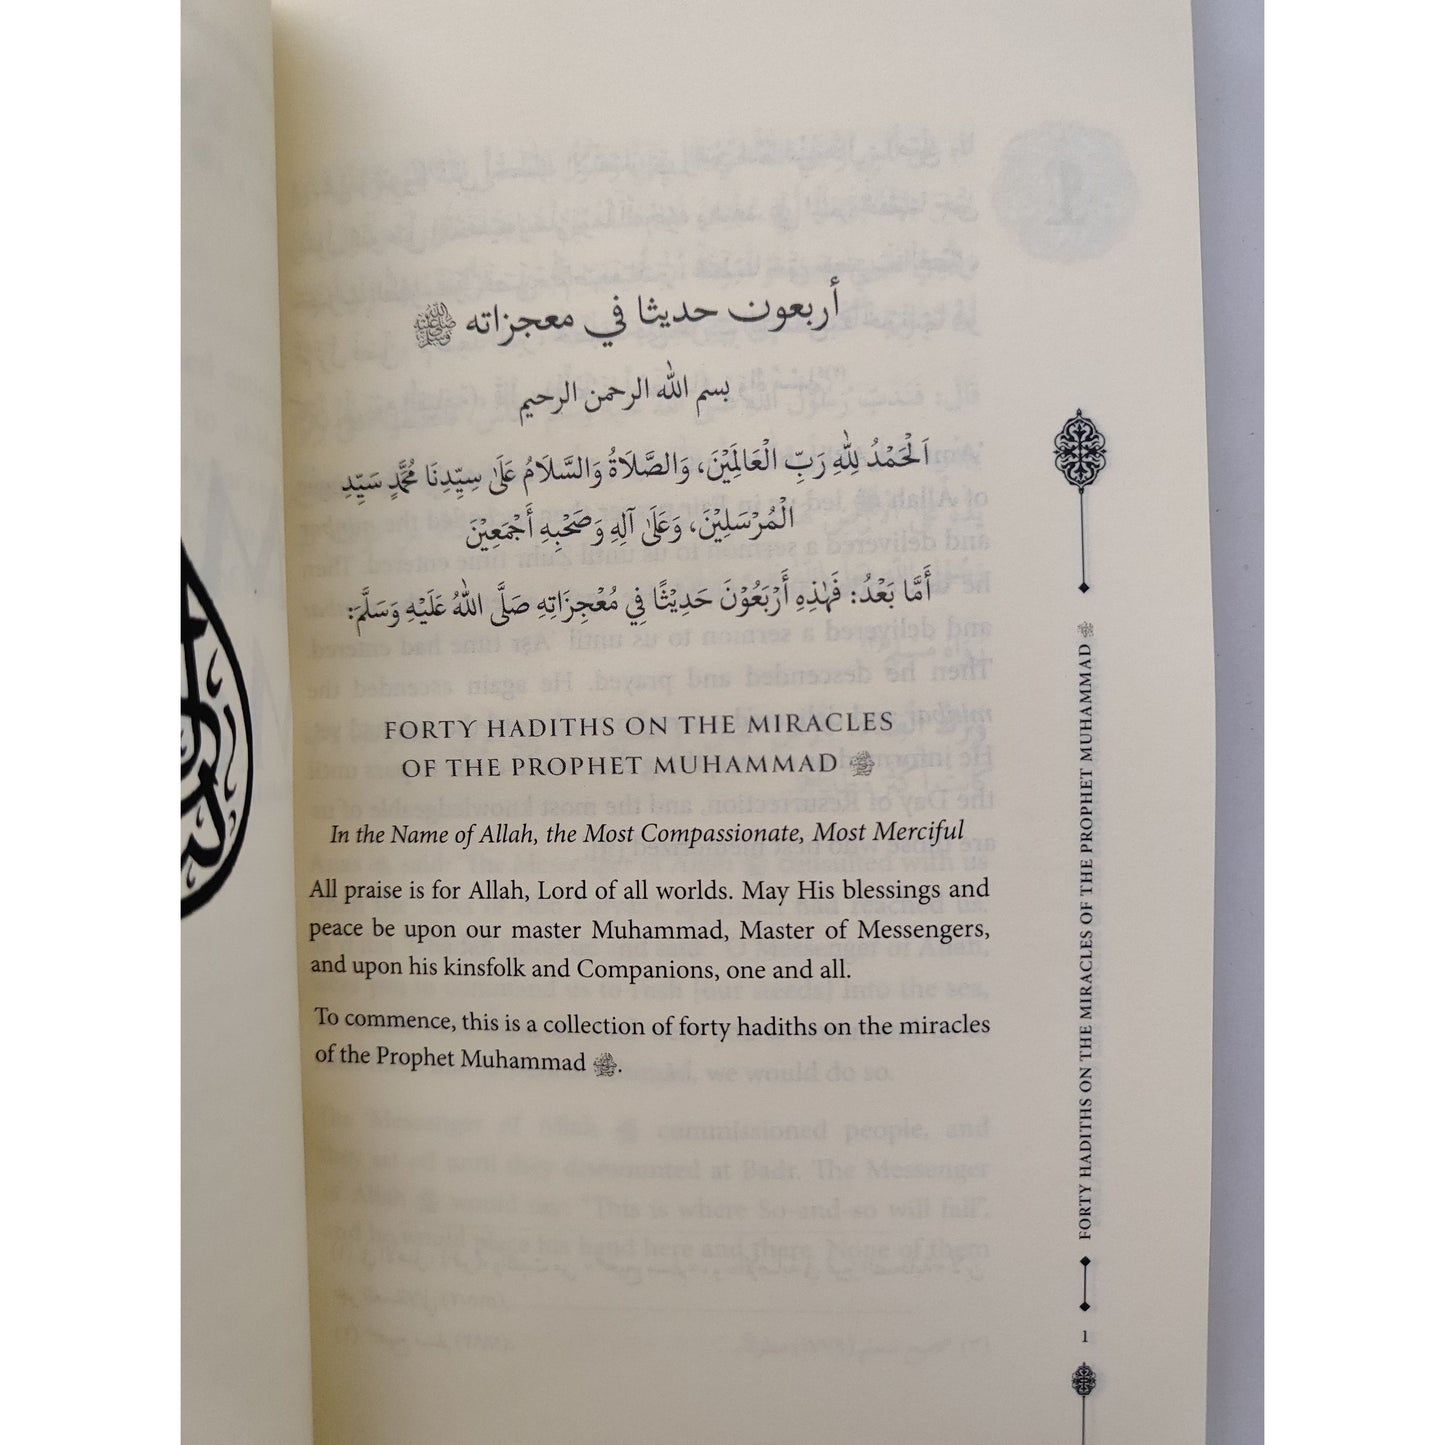 أربعون حديثا في معجزاته ﷺ
بسم الله الرحمن الرحيم
اَلْحَمْدُ لِلّٰهِ رَبِّ الْعَالَمِيْنَ، وَالصَّلَاةُ وَالسَّلَامُ عَلَىٰ سِيِّدِنَا مُحَمَّدٍ سَيِّدِ
الْمُرْسَلِيْنَ، وَعَلَىٰ آلِهِ وَصَحْبِهِ أَجْمَعِيْنَ
أَمَّا بَعْدُ: فَهٰذِهِ أَرْبَعُوْنَ حَدِيْثًا فِي مُعْجِزَاتِهِ صَلَّى اللّٰهُ عَلَيْهِ وَسَلَّمَ:
FORTY HADITHS ON THE MIRACLES
OF THE PROPHET MUHAMMAD ﷺ
In the Name of Allah, the Most Compassionate, Most Merciful
All praise is for Allah, Lord of all worlds. May His blessings and
peace be upon our master Muhammad, Master of Messengers,
and upon his kinsfolk and Companions, one and all.
To commence, this is a collection of forty hadiths on the miracles
of the Prophet Muhammad ﷺ.
FORTY HADITHS ON THE MIRACLES OF THE PROPHET MUHAMMAD ﷺ
1